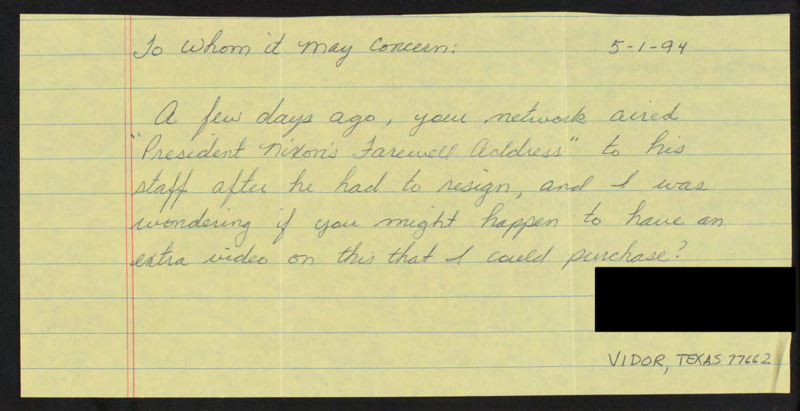 To whom it may concern:
5-1-94
A few days ago, your network aired
"President Nixon's Farewell Address" to his
staff after he had to resign, and I was
wondering if you might happen to have an
extra video on this that I could purchase?
VIDOR, TEXAS 77662